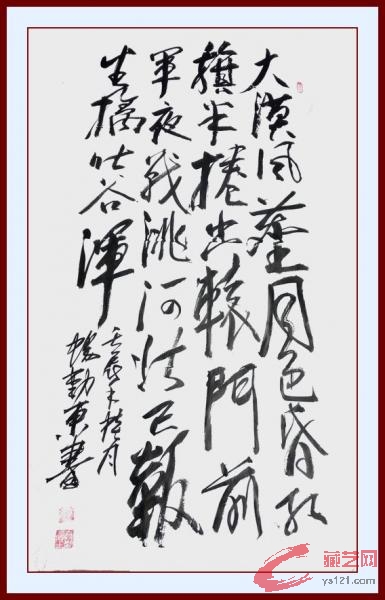 大漠风塵日色昏红
旗半捲出轅門前
軍夜战洮河北已報
生擒吐谷渾
壬辰年桂月
勤東書
藏艺网
ys121.com